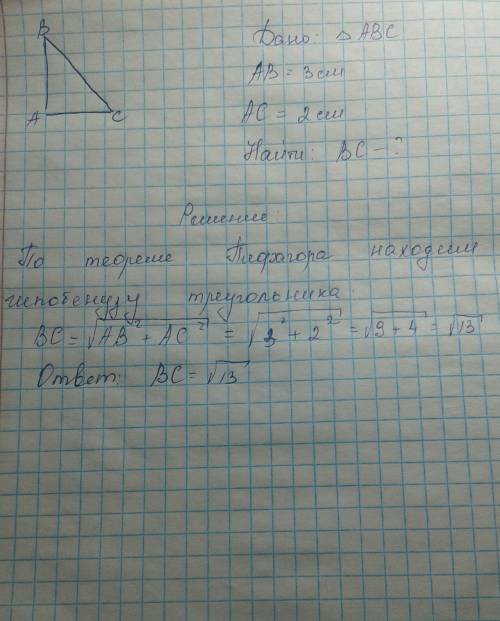 B
A
C
Дано: △ ABC
AB = 3 см
AC = 2 см
Найти: BC - ?
Решение:
По теореме Пифагора находим
гипотенузу треугольника:
BC = √AB² + AC² = √3² + 2² = √9 + 4 = √13
Ответ: BC = √13